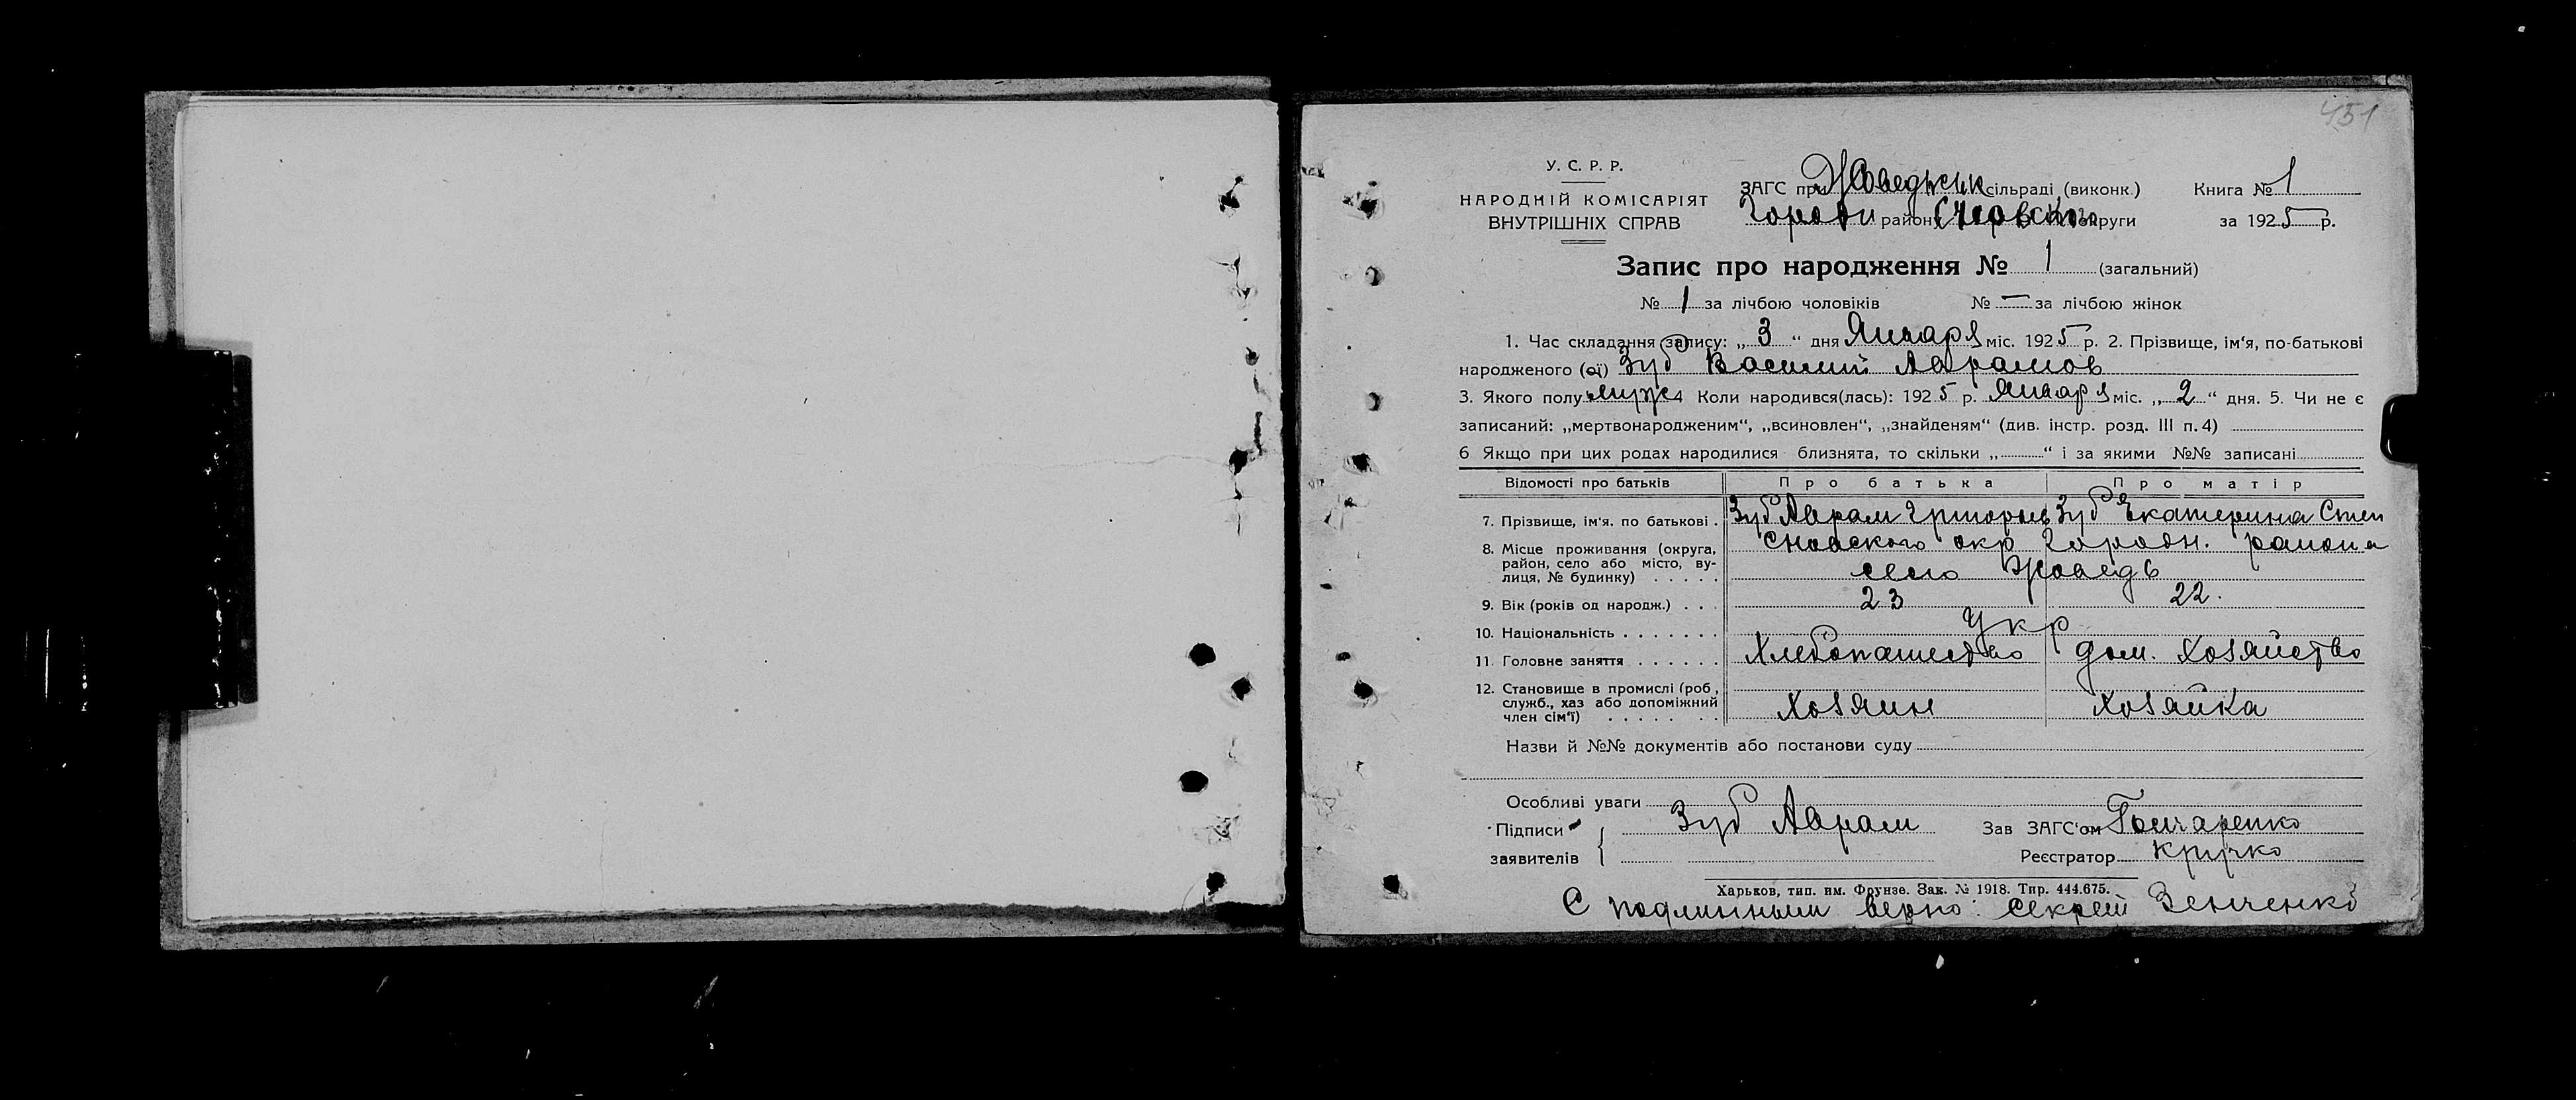 451
У. С. Р. Р.
НАРОДНІЙ КОМІСАРІЯТ
ВНУТРІШНІХ СПРАВ
ЗАГС при Жоведьськ сільраді (виконк.) Книга № 1
Городн району Сновского округи за 1925 р.
Запис про народження № 1 (загальний)
№ 1 за лічбою чоловіків № — за лічбою жінок
1. Час складання запису: „ 3 “ дня Января міс. 1925 р. 2. Прізвище, ім‘я, по-батькові
народженого (ої) Зуб Василий Аврамов
3. Якого полу муж 4 Коли народився(лась): 1925 р. Января міс. „ 2 “ дня. 5. Чи не є
записаний: „мертвонародженим“, „всиновлен“, „знайденям“ (див. інстр. розд. III п. 4)
6 Якщо при цих родах народилися близнята, то скільки „ “ і за якими №№ записані
Відомості про батьків Про батька Про матір
7. Прізвище, ім‘я. по батькові . Зуб Аврам Григорьев Зуб Екатерина Степ
8. Місце проживання (округа, район, село або місто, вулиця, № будинку) . . . . . Сновского окр Городн. района
село Жоведь
9. Вік (років од народж.) . . . 23 22.
10. Національність . . . . . . . Укр
11. Головне заняття . . . . . . Хлебопашество дом. хозяйство
12. Становище в промислі (роб, служб., хаз або допоміжний член сім‘ї) . . . . . . . Хозяин Хозяйка
Назви й №№ документів або постанови суду
Особливі уваги
Підписи Зуб Аврам Зав ЗАГС‘ом Гончаренко
заявителів Реєстратор Кручко
Харьков, тип. им. Фрунзе. Зак. № 1918. Тир. 444.675.
С подлинным верно: секрет Зенченко